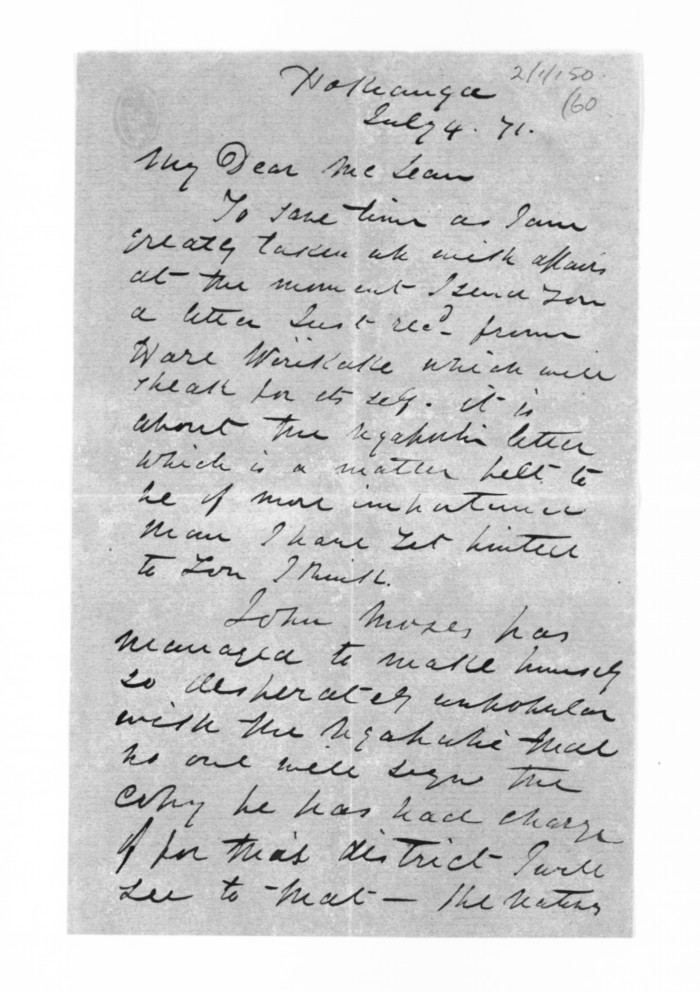 Hokianga
2/1/150
(60
July 4. 71.
My Dear McLean
To save time as I am
greatly taken up with affairs
at the moment I send you
a letter just rec.d from
Hare Wirikake which will
speak for its self. it is
about the Ngapuhi letter
which is a matter felt to
be of more importance
than I have yet hinted
to you I think.
John Moses has
managed to make himself
so desperately unpopular
with the Ngapuhi that
no one will sign the
copy he has had charge
of for this district I will
see to that — the natives